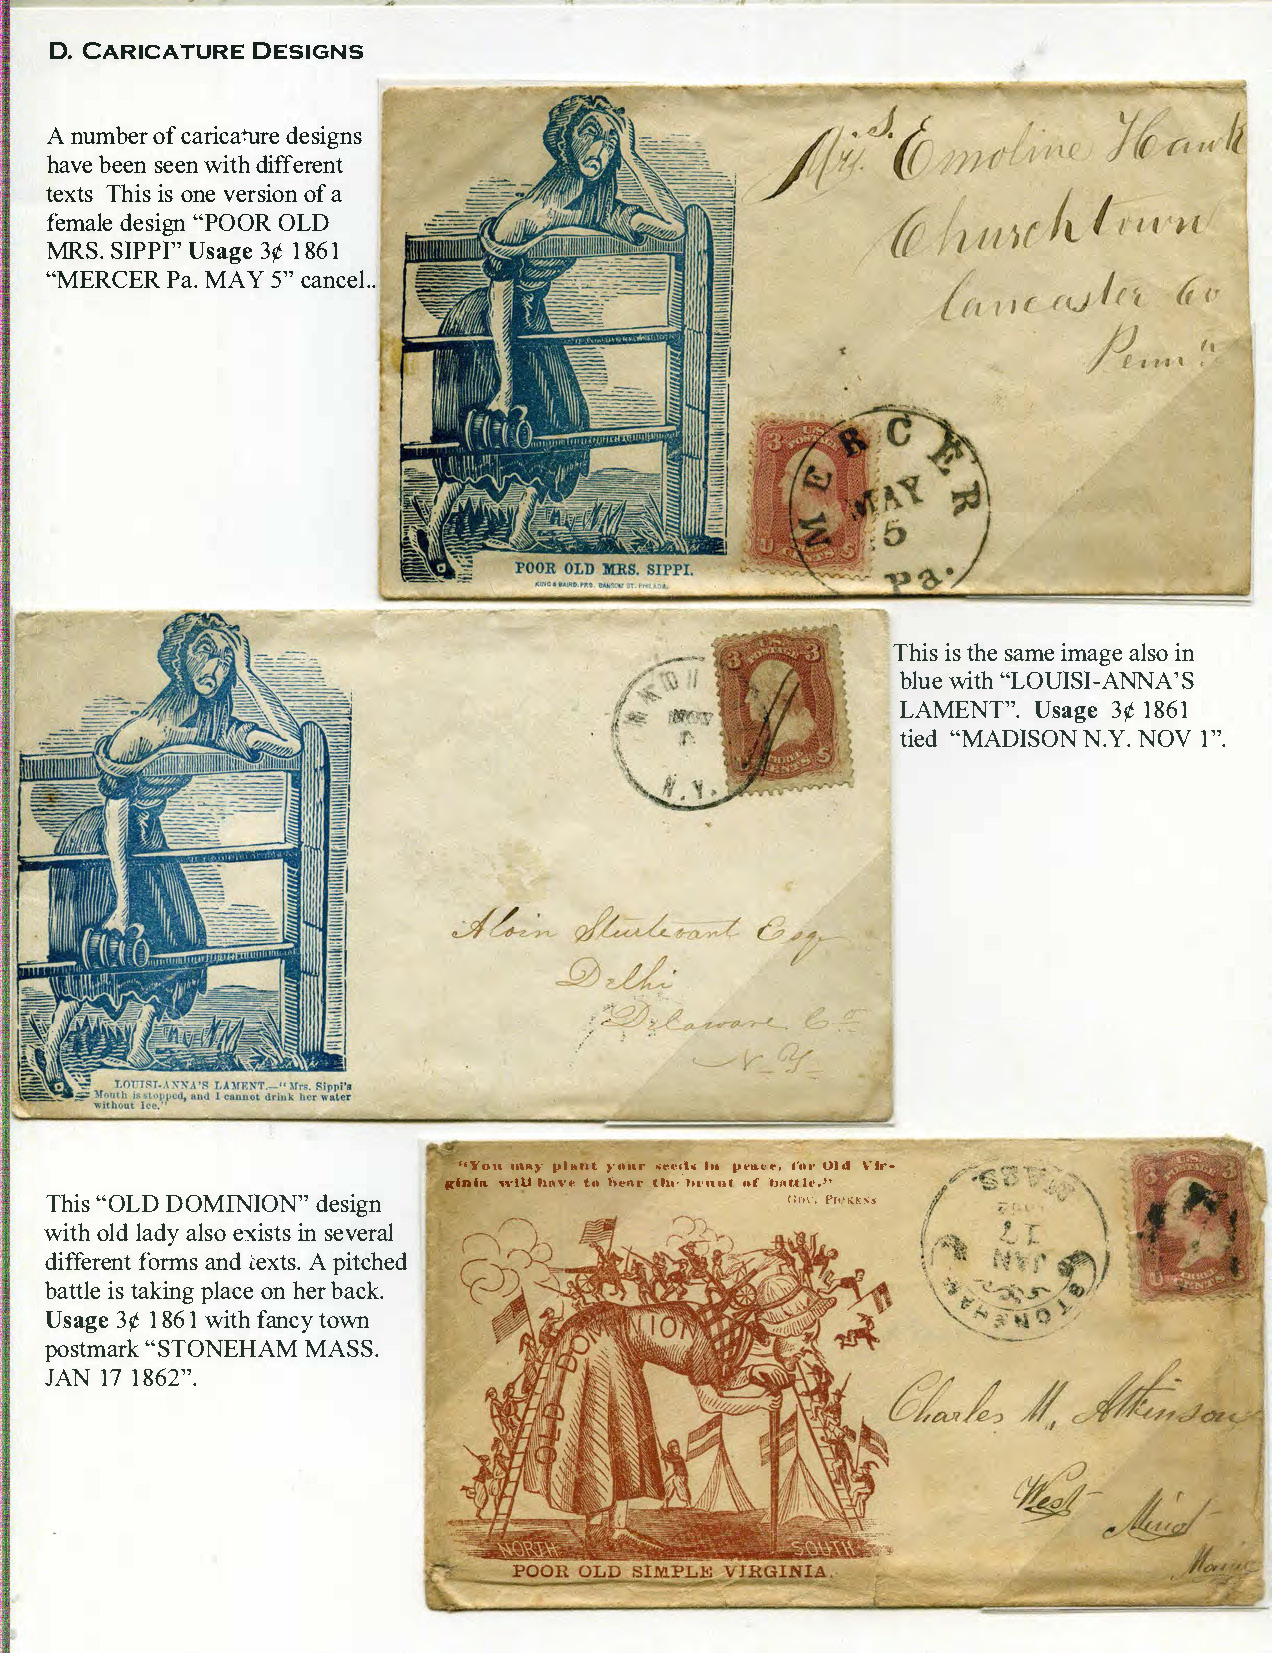 D. CARICATURE DESIGNS
A number of caricature designs
have been seen with different
texts This is one version of a
female design “POOR OLD
MRS. SIPPI” Usage 3¢ 1861
“MERCER Pa. MAY 5” cancel..
Mrs. S. Emoline Hawk
Churchtown
Lancaster Co
Penn a
3 U.S. POSTAGE
U CENTS S
MERCER
MAY
5
Pa.
POOR OLD MRS. SIPPI.
KING & BAIRD, PRS. SANSOM ST. PHILADA.
This is the same image also in
blue with “LOUISI-ANNA’S
LAMENT”. Usage 3¢ 1861
tied “MADISON N.Y. NOV 1”.
3 U.S. POSTAGE 3
CENTS S
NOV
N.Y.
Alvin Sturtevant Esq
Delhi
Delaware Co
N-Y-
LOUISI-ANNA’S LAMENT.—“Mrs. Sippi’s
Mouth is stopped, and I cannot drink her water
without Ice.”
This “OLD DOMINION” design
with old lady also exists in several
different forms and texts. A pitched
battle is taking place on her back.
Usage 3¢ 1861 with fancy town
postmark “STONEHAM MASS.
JAN 17 1862”.
“You may plant your seeds in peace, for Old Vir-
ginia will have to bear the brunt of battle.”
GOV. PICKENS
STONEHAM
JAN
17
1862
MASS
3 3
U CENTS S
OLD DOMINION
Charles M. Atkinson
West
Minot
Maine
NORTH SOUTH
POOR OLD SIMPLE VIRGINIA.